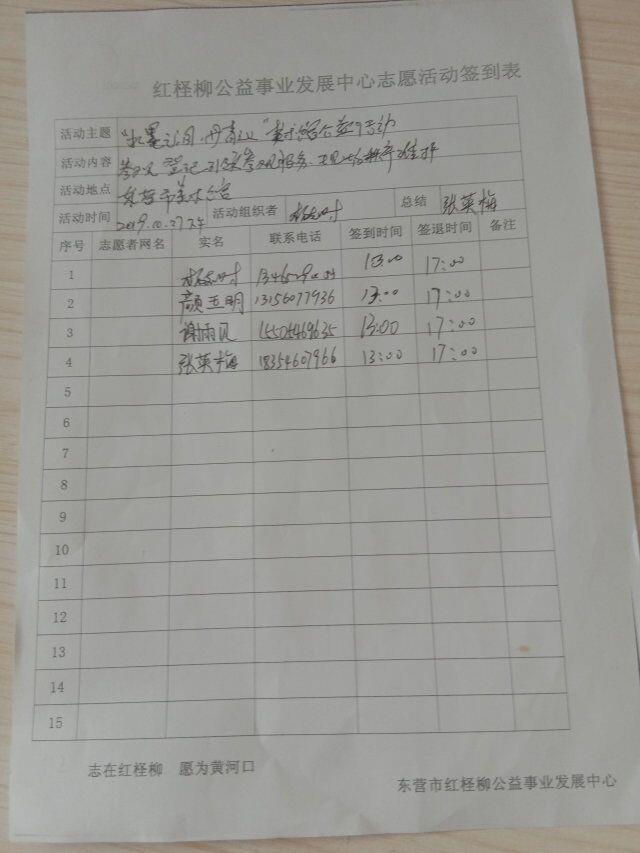 红柽柳公益事业发展中心志愿活动签到表
活动主题 "水墨 丹青 "美术 公益活动
活动内容 登记 引领参观服务 现场秩序维护
活动地点 东营市美术
活动时间 2019.10.27 活动组织者 总结 张英梅
序号 志愿者网名 实名 联系电话 签到时间 签退时间 备注
1 13:00 17:00
2 颜 明 13156077936 13:00 17:00
3 谢雨风 15505469635 13:00 17:00
4 张英梅 18354607966 13:00 17:00
5
6
7
8
9
10
11
12
13
14
15
志在红柽柳 愿为黄河口
东营市红柽柳公益事业发展中心